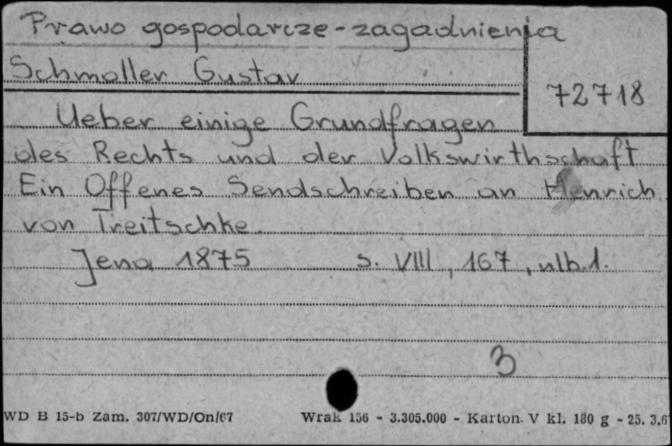 Prawo gospodarcze-zagadnienia
Schmoller Gustav
72718
Ueber einige Grundfragen
des Rechts und der Volkswirthschaft
Ein Offenes Sendschreiben an Heinrich
von Treitschke.
Jena 1875 s. VIII, 167, nlb.1.
3
WD B 15-b Zam. 307/WD/On/67 Wrak 156 - 3.305.000 - Karton V kl. 180 g - 25. 3.6